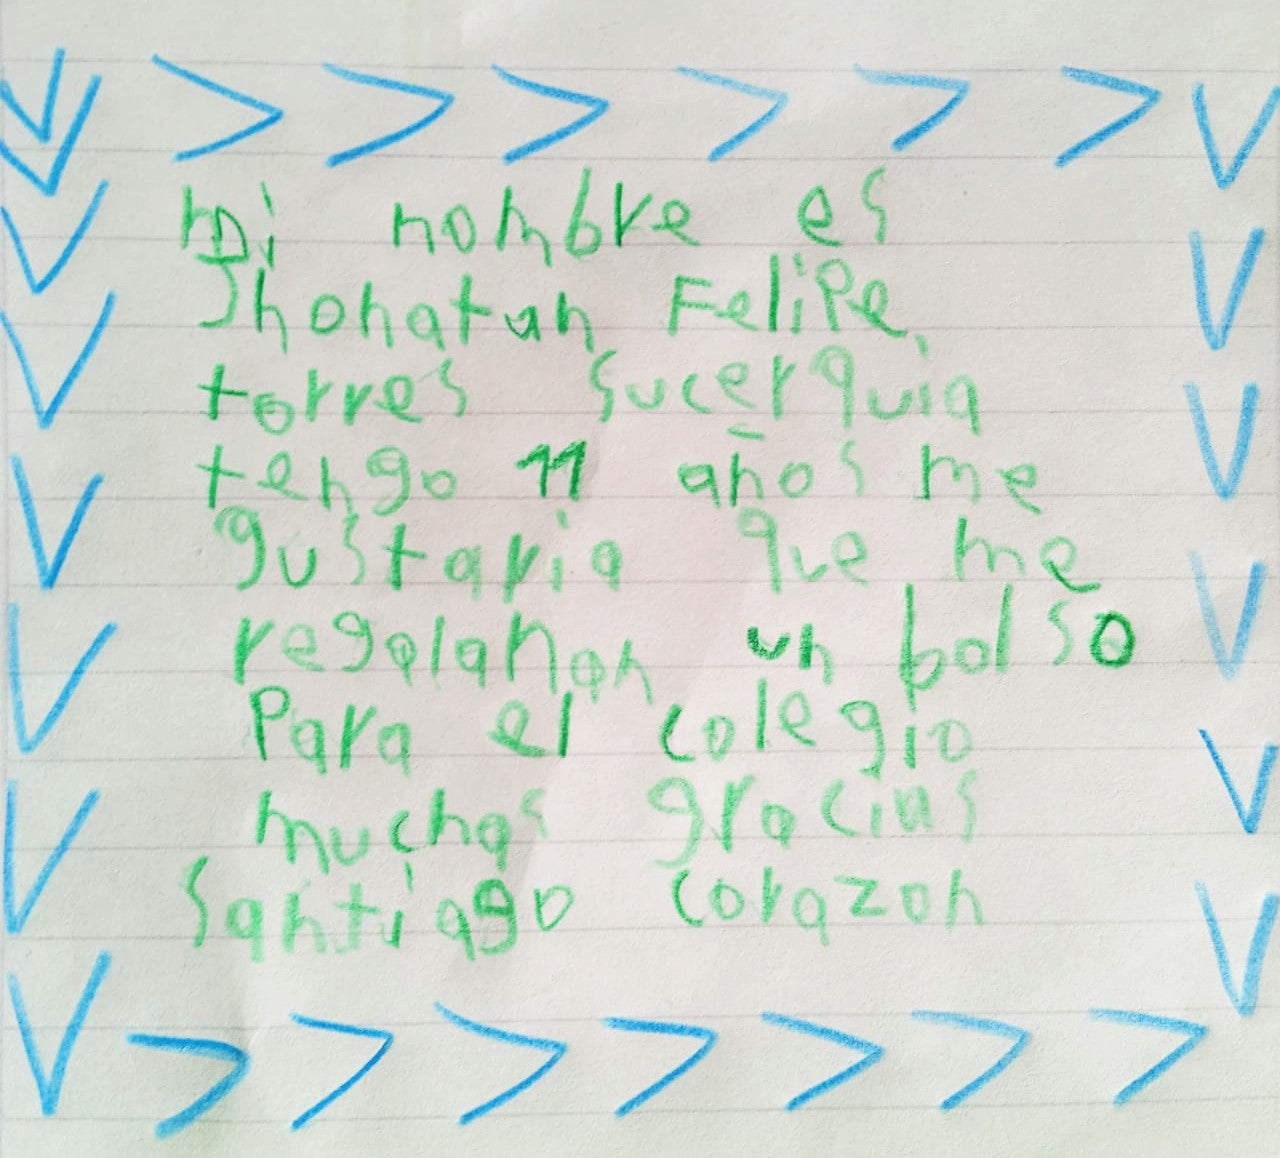 mi nombre es
Jhohatan Felipe
torres sucerquia
tengo 11 años me
gustaria que me
regalanan un bolso
Para el colegio
muchas gracias
Santiago corazon